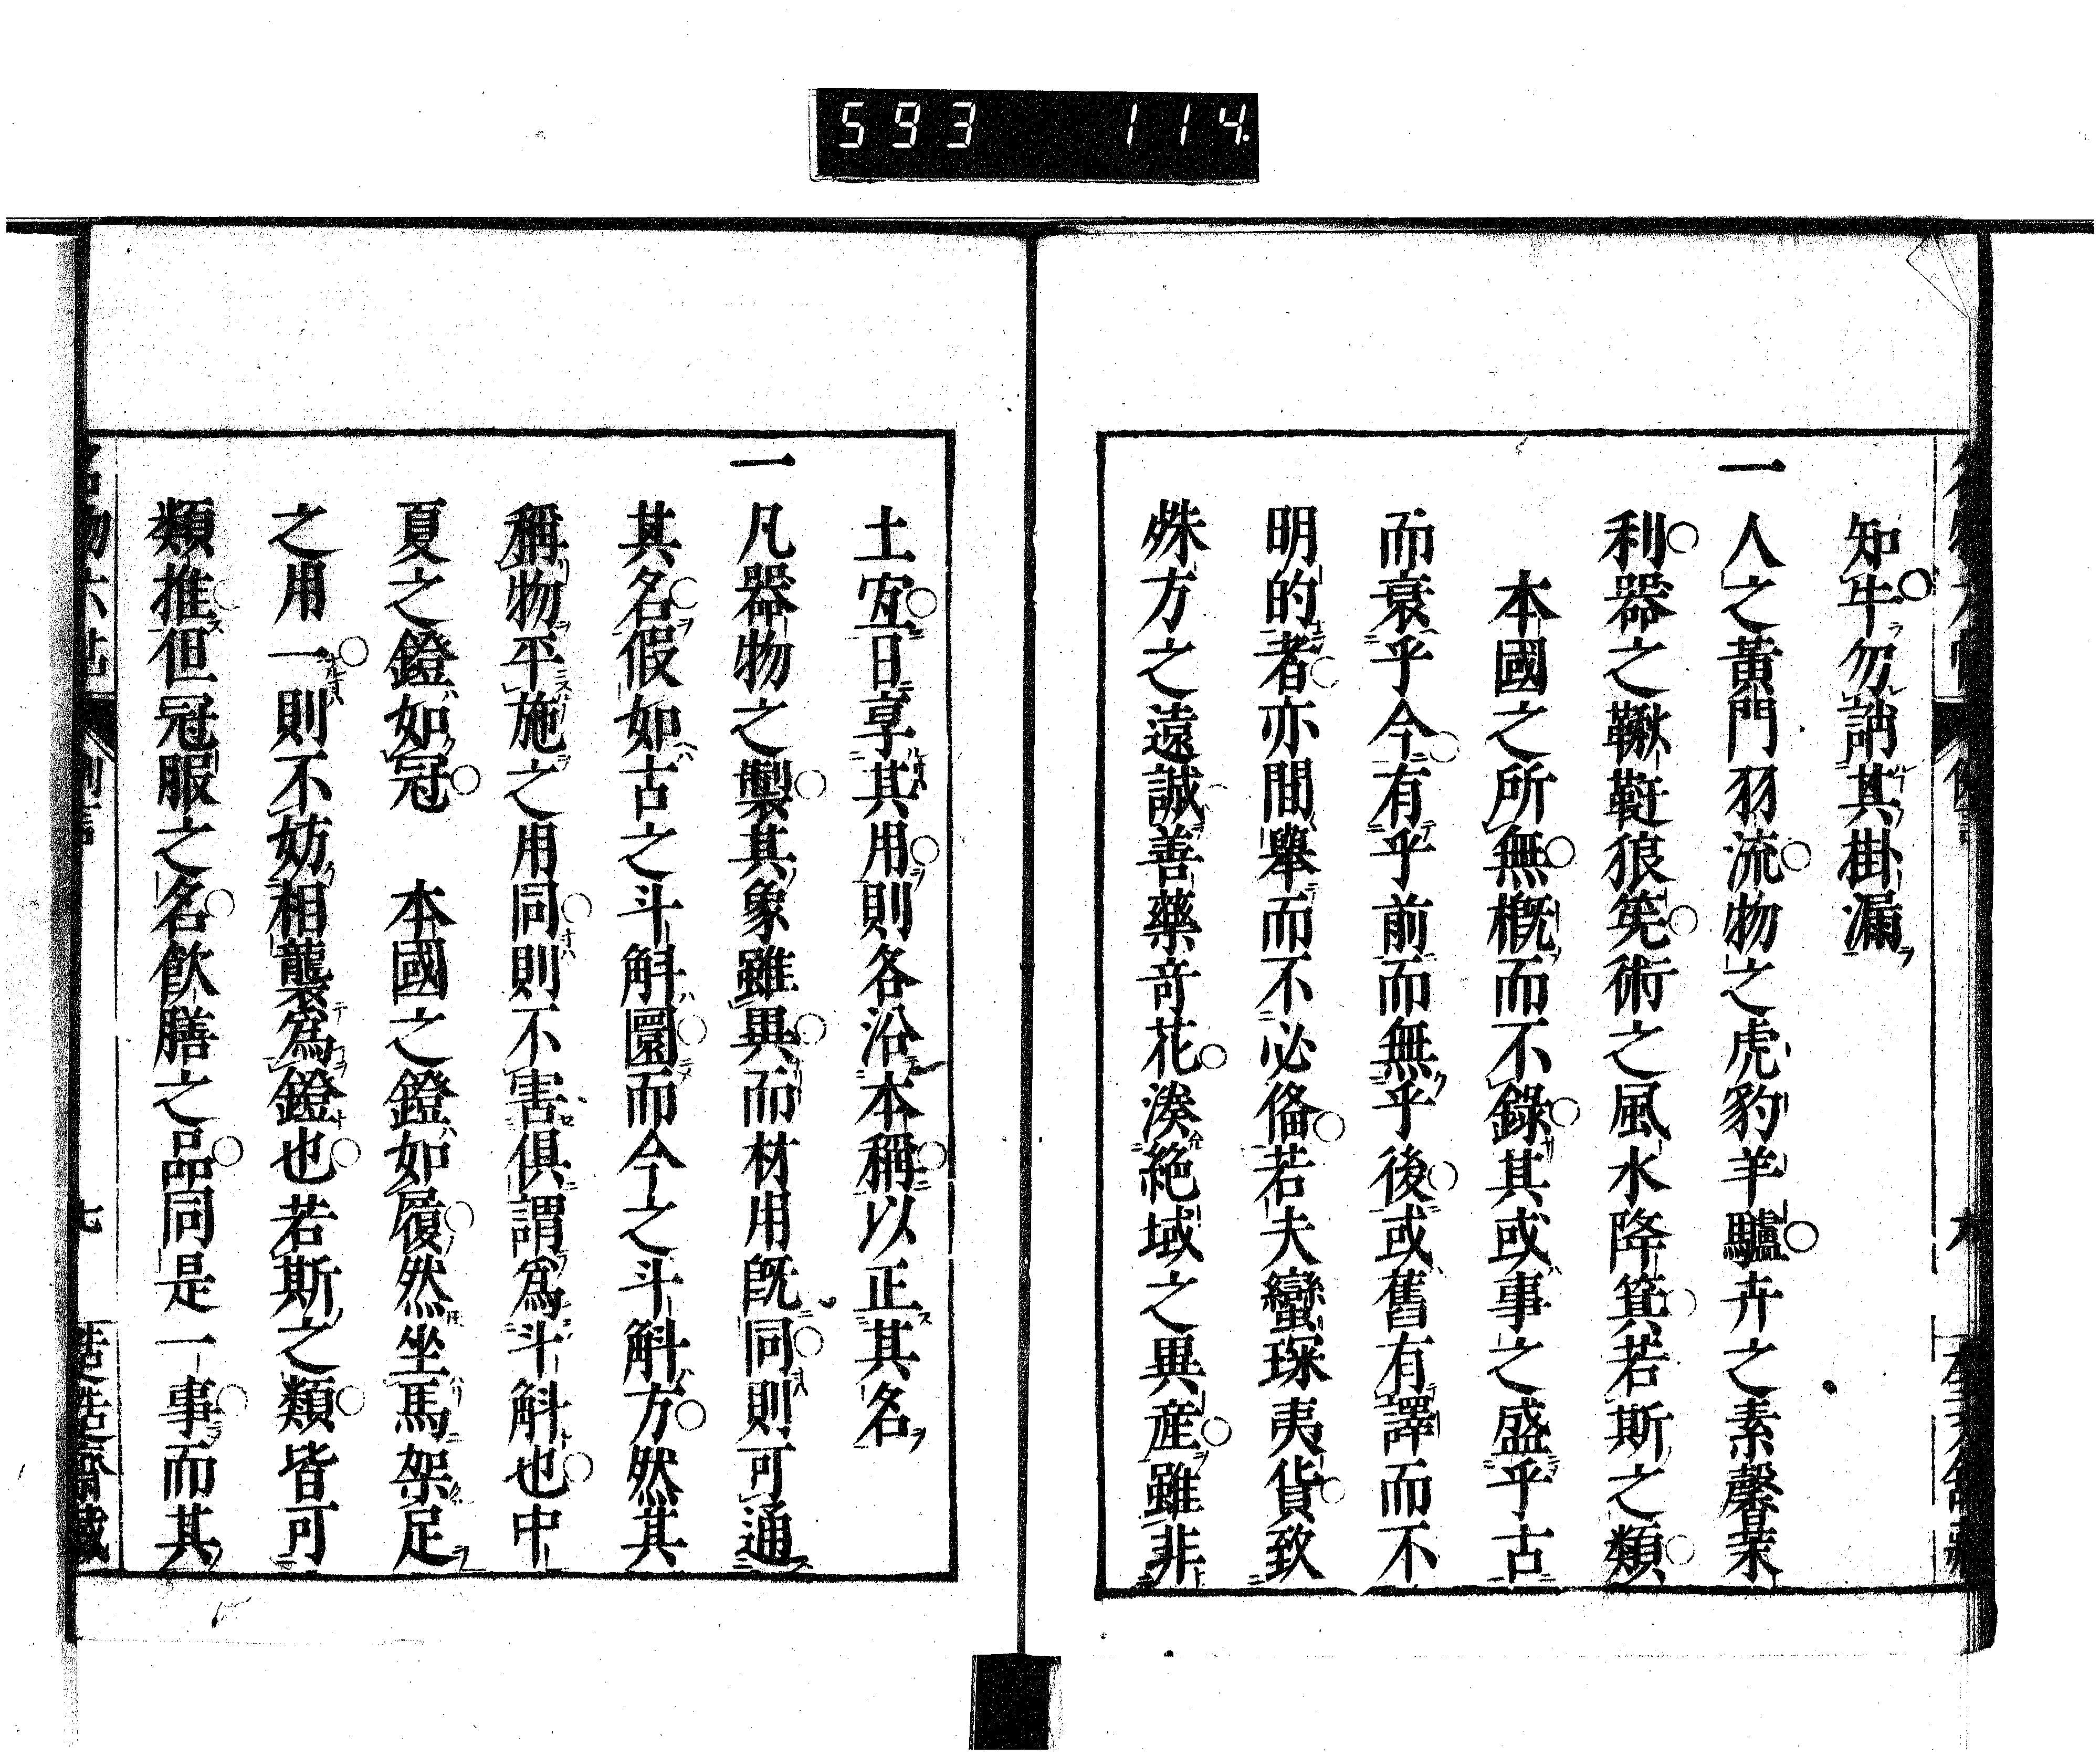 593 114
知牛勿誚其掛漏
一人之黃門羽流物之虎豹羊驢卉之素馨茉
利器之鞦韆狼筅術之風水降箕若斯之類
本國之所無槪而不錄其或事之盛乎古
而衰乎今有乎前而無乎後或舊有譯而不
明的者亦間舉而不必俻若夫蠻琛夷貨致
殊方之遠誠善藥奇花湊絕域之異產雖非
土宐日享其用則各沿本稱以正其名
一凡器物之製其象雖異而材用旣同則可通
其名假如古之斗斛圜而今之斗斛方然其
稱物平施之用同則不害俱謂爲斗斛也中
夏之鐙如冠 本國之鐙如履然坐馬架足
之用一則不妨相襲爲鐙也若斯之類皆可
類推但冠服之名飮膳之品同是一事而其